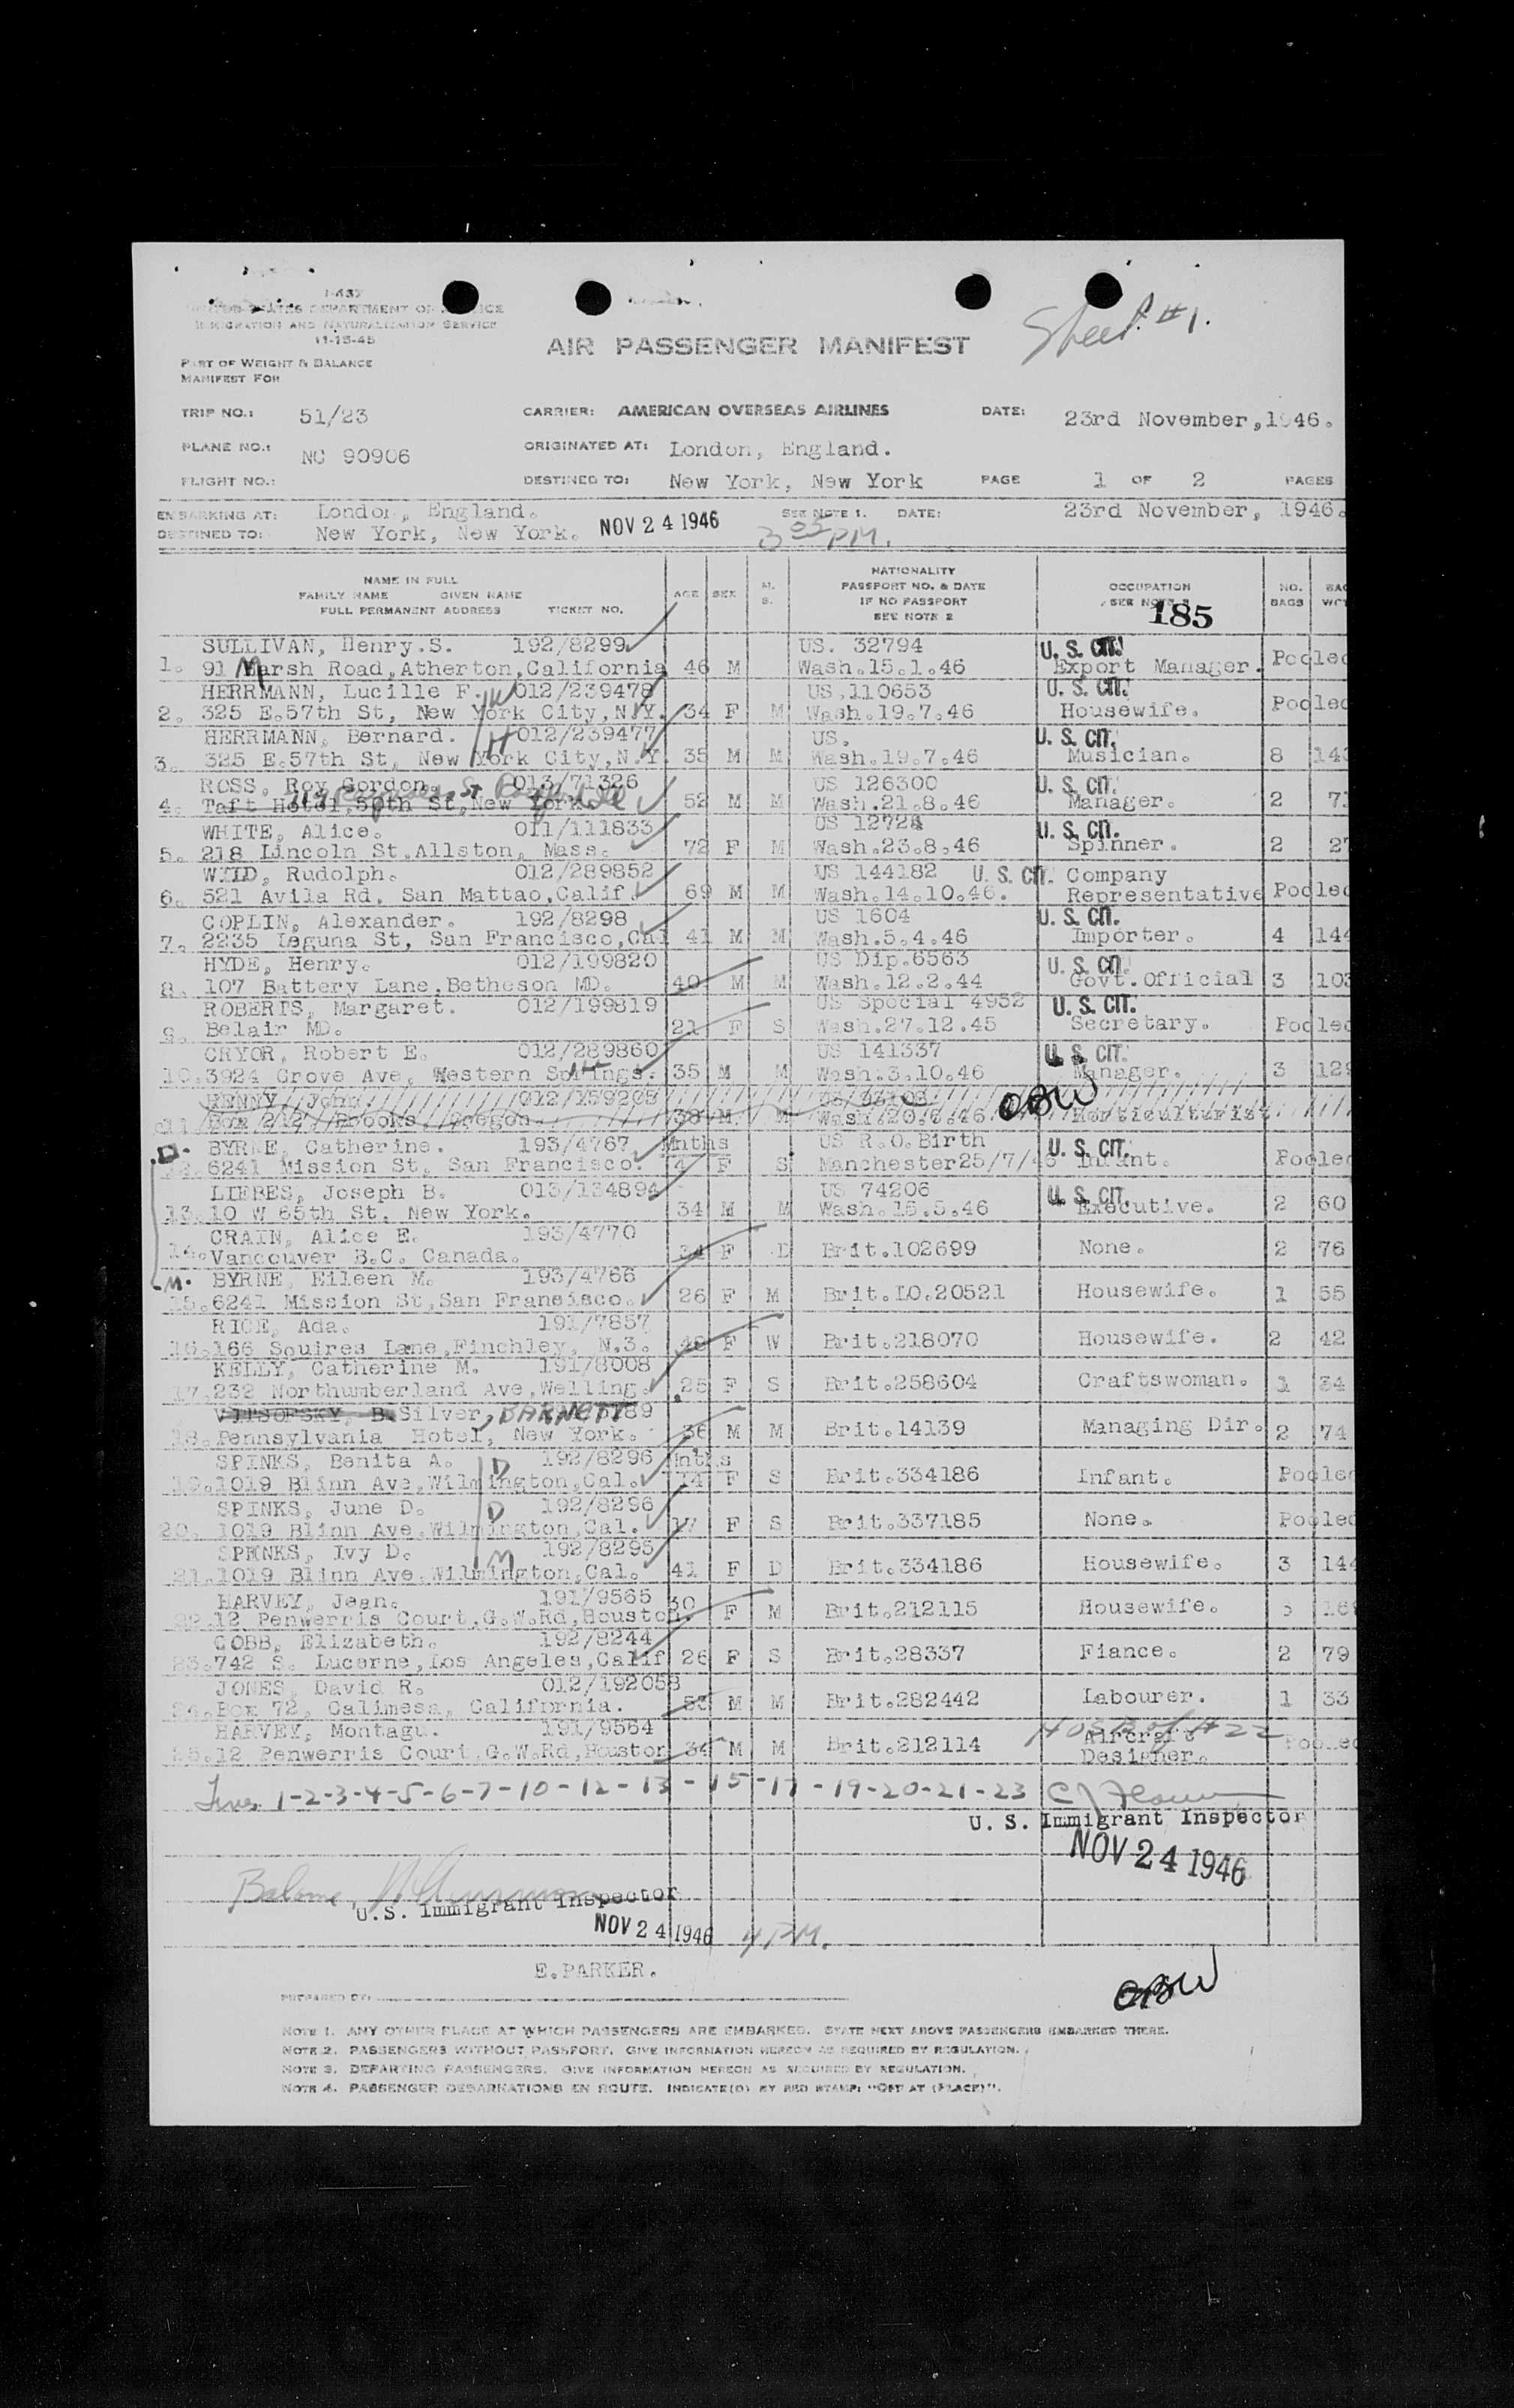 Sheet #1.
I-437
UNITED STATES DEPARTMENT OF JUSTICE
IMMIGRATION AND NATURALIZATION SERVICE
11-15-45
AIR PASSENGER MANIFEST
PART OF WEIGHT & BALANCE
MANIFEST FOR
TRIP NO.: 51/23 CARRIER: AMERICAN OVERSEAS AIRLINES DATE: 23rd November, 1946.
PLANE NO.: NC 90906 ORIGINATED AT: London, England.
FLIGHT NO.: DESTINED TO: New York, New York PAGE 1 OF 2 PAGES
EMBARKING AT: London, England. SEE NOTE 1. DATE: 23rd November, 1946.
DESTINED TO: New York, New York. NOV 24 1946 3 05 PM.
NAME IN FULL
FAMILY NAME GIVEN NAME
FULL PERMANENT ADDRESS TICKET NO. AGE SEX M. S. NATIONALITY PASSPORT NO. & DATE IF NO PASSPORT SEE NOTE 2 OCCUPATION SEE NOTE 185 NO. BAGS BAG WGT
SULLIVAN, Henry.S. 192/8299 US. 32794 U. S. CIT.
1. 91 Marsh Road,Atherton,California 46 M Wash.15.1.46 Export Manager. Pooled
HERRMANN, Lucille F. W 012/239478 US.110653 U. S. CIT.
2. 325 E.57th St, New York City,N.Y. 34 F M Wash.19.7.46 Housewife. Pooled
HERRMANN, Bernard. H 012/239477 US. U. S. CIT.
3. 325 E.57th St, New York City,N.Y. 35 M M Wash.19.7.46 Musician. 8 140
ROSS, Roy Gordon. 013/71326 US 126300 U. S. CIT.
4. Taft Hotel,50th St,New York. 52 M M Wash.21.8.46 Manager. 2 71
WHITE, Alice. 011/111833 US 12724 U. S. CIT.
5. 218 Lincoln St.Allston, Mass. 72 F M Wash.23.8.46 Spinner. 2 27
WILD, Rudolph. 012/289852 US 144182 U. S. CIT. Company
6. 521 Avila Rd, San Mattao,Calif. 69 M M Wash.14.10.46. Representative Pooled
COPLIN, Alexander. 192/8298 US 1604 U. S. CIT.
7. 2235 Laguna St, San Francisco,Cal 41 M M Wash.5.4.46 Importer. 4 144
HYDE, Henry. 012/199820 US Dip.6563 U. S. CIT.
8. 107 Battery Lane.Betheson MD. 40 M M Wash.12.2.44 Govt.Official 3 103
ROBERTS, Margaret. 012/199819 US Special 4952 U. S. CIT.
9. Belair MD. 21 F S Wash.27.12.45 Secretary. Pooled
CRYOR, Robert E. 012/289860 US 141337 U. S. CIT.
10.3924 Grove Ave, Western Springs. 35 M M Wash.3.10.46 Manager. 3 129
HENNY, John. 012/159205 OBW
11. Box 212, Brooks, Oregon. 38 M M Wash.20.6.46 Horticulturist
D. BYRNE, Catherine. 193/4767 Mnths US R.O.Birth U. S. CIT.
12.6241 Mission St, San Francisco. 4 F S Manchester25/7/46 Infant. Pooled
LIEBES, Joseph B. 013/134894 US 74206 U. S. CIT.
13.10 W 65th St, New York. 34 M M Wash.15.5.46 Executive. 2 60
CRAIN, Alice E. 193/4770
14.Vancouver B.C. Canada. 34 F D Brit.102699 None. 2 76
M. BYRNE, Eileen M. 193/4766
15.6241 Mission St,San Francisco. 26 F M Brit.LO.20521 Housewife. 1 55
RICE, Ada. 191/7857
16.166 Squires Lane,Finchley, N.3. 48 F W Brit.218070 Housewife. 2 42
KELLY, Catherine M. 191/8008
17.232 Northumberland Ave,Welling. 25 F S Brit.258604 Craftswoman. 1 34
VITSOFSKY, B.Silver, BARNETT
18.Pennsylvania Hotel, New York. 36 M M Brit.14139 Managing Dir. 2 74
SPINKS, Benita A. D 192/8296 Mnths
19.1019 Blinn Ave,Wilmington,Cal. 14 F S Brit.334186 Infant. Pooled
SPINKS, June D. D 192/8296
20. 1019 Blinn Ave.Wilmington,Cal. 17 F S Brit.337185 None. Pooled
SPENKS, Ivy D. M 192/8295
21.1019 Blinn Ave.Wilmington,Cal. 41 F D Brit.334186 Housewife. 3 144
HARVEY, Jean. 191/9565 30
22.12 Penwerris Court,G.W.Rd,Houston. F M Brit.212115 Housewife.
COBB, Elizabeth. 192/8244
23.742 S. Lucerne,Los Angeles,Calif 26 F S Brit.28337 Fiance. 2 79
JONES, David R. 012/192058
24.Box 72, Calimesa, California. 53 M M Brit.282442 Labourer. 1 33
HARVEY, Montagu. 191/9564 Husb of #22 Aircraft
25.12 Penwerris Court,G.W.Rd,Houston 34 M M Brit.212114 Designer. Pooled
1-2-3-4-5-6-7-10-12-13-15-17-19-20-21-23
U. S. Immigrant Inspector
NOV 24 1946
Balance
U.S. Immigrant Inspector
NOV 24 1946 4 PM.
E.PARKER.
PREPARED BY: OBW
NOTE 1. ANY OTHER PLACE AT WHICH PASSENGERS ARE EMBARKED. STATE NEXT ABOVE PASSENGERS EMBARKED THERE.
NOTE 2. PASSENGERS WITHOUT PASSPORT. GIVE INFORMATION HEREON AS REQUIRED BY REGULATION.
NOTE 3. DEPARTING PASSENGERS. GIVE INFORMATION HEREON AS REQUIRED BY REGULATION.
NOTE 4. PASSENGER DEBARKATIONS EN ROUTE. INDICATE(D) BY RED STAMP: "OFF AT (PLACE)".